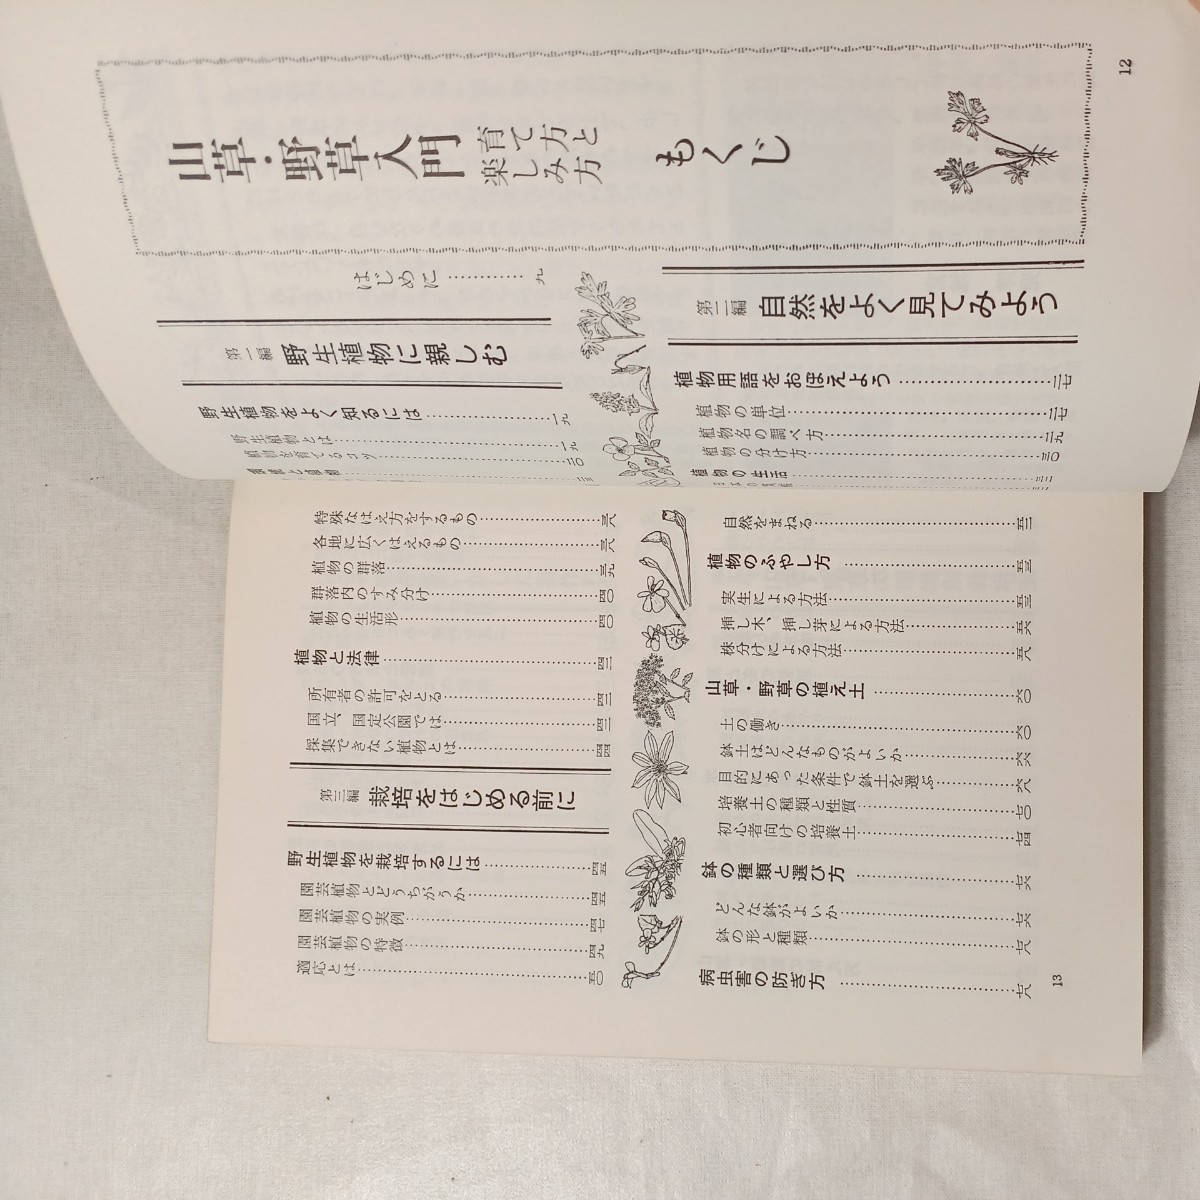 12
山草・野草入門
育て方と
楽しみ方
もくじ
はじめに…………九
第一編 野生植物に親しむ
野生植物をよく知るには…………一九
野生植物とは…………一九
植物を育てるコツ…………二〇
第二編 自然をよく見てみよう
植物用語をおぼえよう…………二七
植物の単位…………二七
植物名の調べ方…………二九
植物の分け方…………三〇
植物の生活…………三二
特殊なはえ方をするもの…………三八
各地に広くはえるもの…………三八
植物の群落…………三九
群落内のすみ分け…………四〇
植物の生活形…………四〇
植物と法律…………四二
所有者の許可をとる…………四二
国立、国定公園では…………四二
採集できない植物とは…………四四
第三編 栽培をはじめる前に
野生植物を栽培するには…………四五
園芸植物とどうちがうか…………四五
園芸植物の実例…………四七
園芸植物の特徴…………四九
適応とは…………五〇
自然をまねる…………五二
植物のふやし方…………五三
実生による方法…………五三
挿し木、挿し芽による方法…………五六
株分けによる方法…………五八
山草・野草の植え土…………六〇
土の働き…………六〇
鉢土はどんなものがよいか…………六六
目的にあった条件で鉢土を選ぶ…………六八
培養土の種類と性質…………七〇
初心者向けの培養土…………七四
鉢の種類と選び方…………七六
どんな鉢がよいか…………七六
鉢の形と種類…………七八
病虫害の防ぎ方…………七八
13